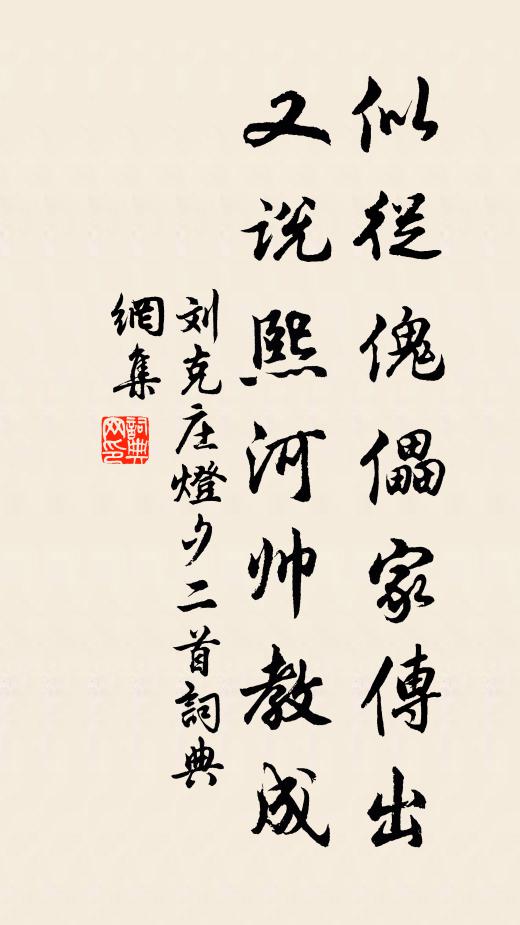 似從傀儡家傳出
又説熙河帅教成
刘克庄燈夕二首詞典
網集
詞典
网印